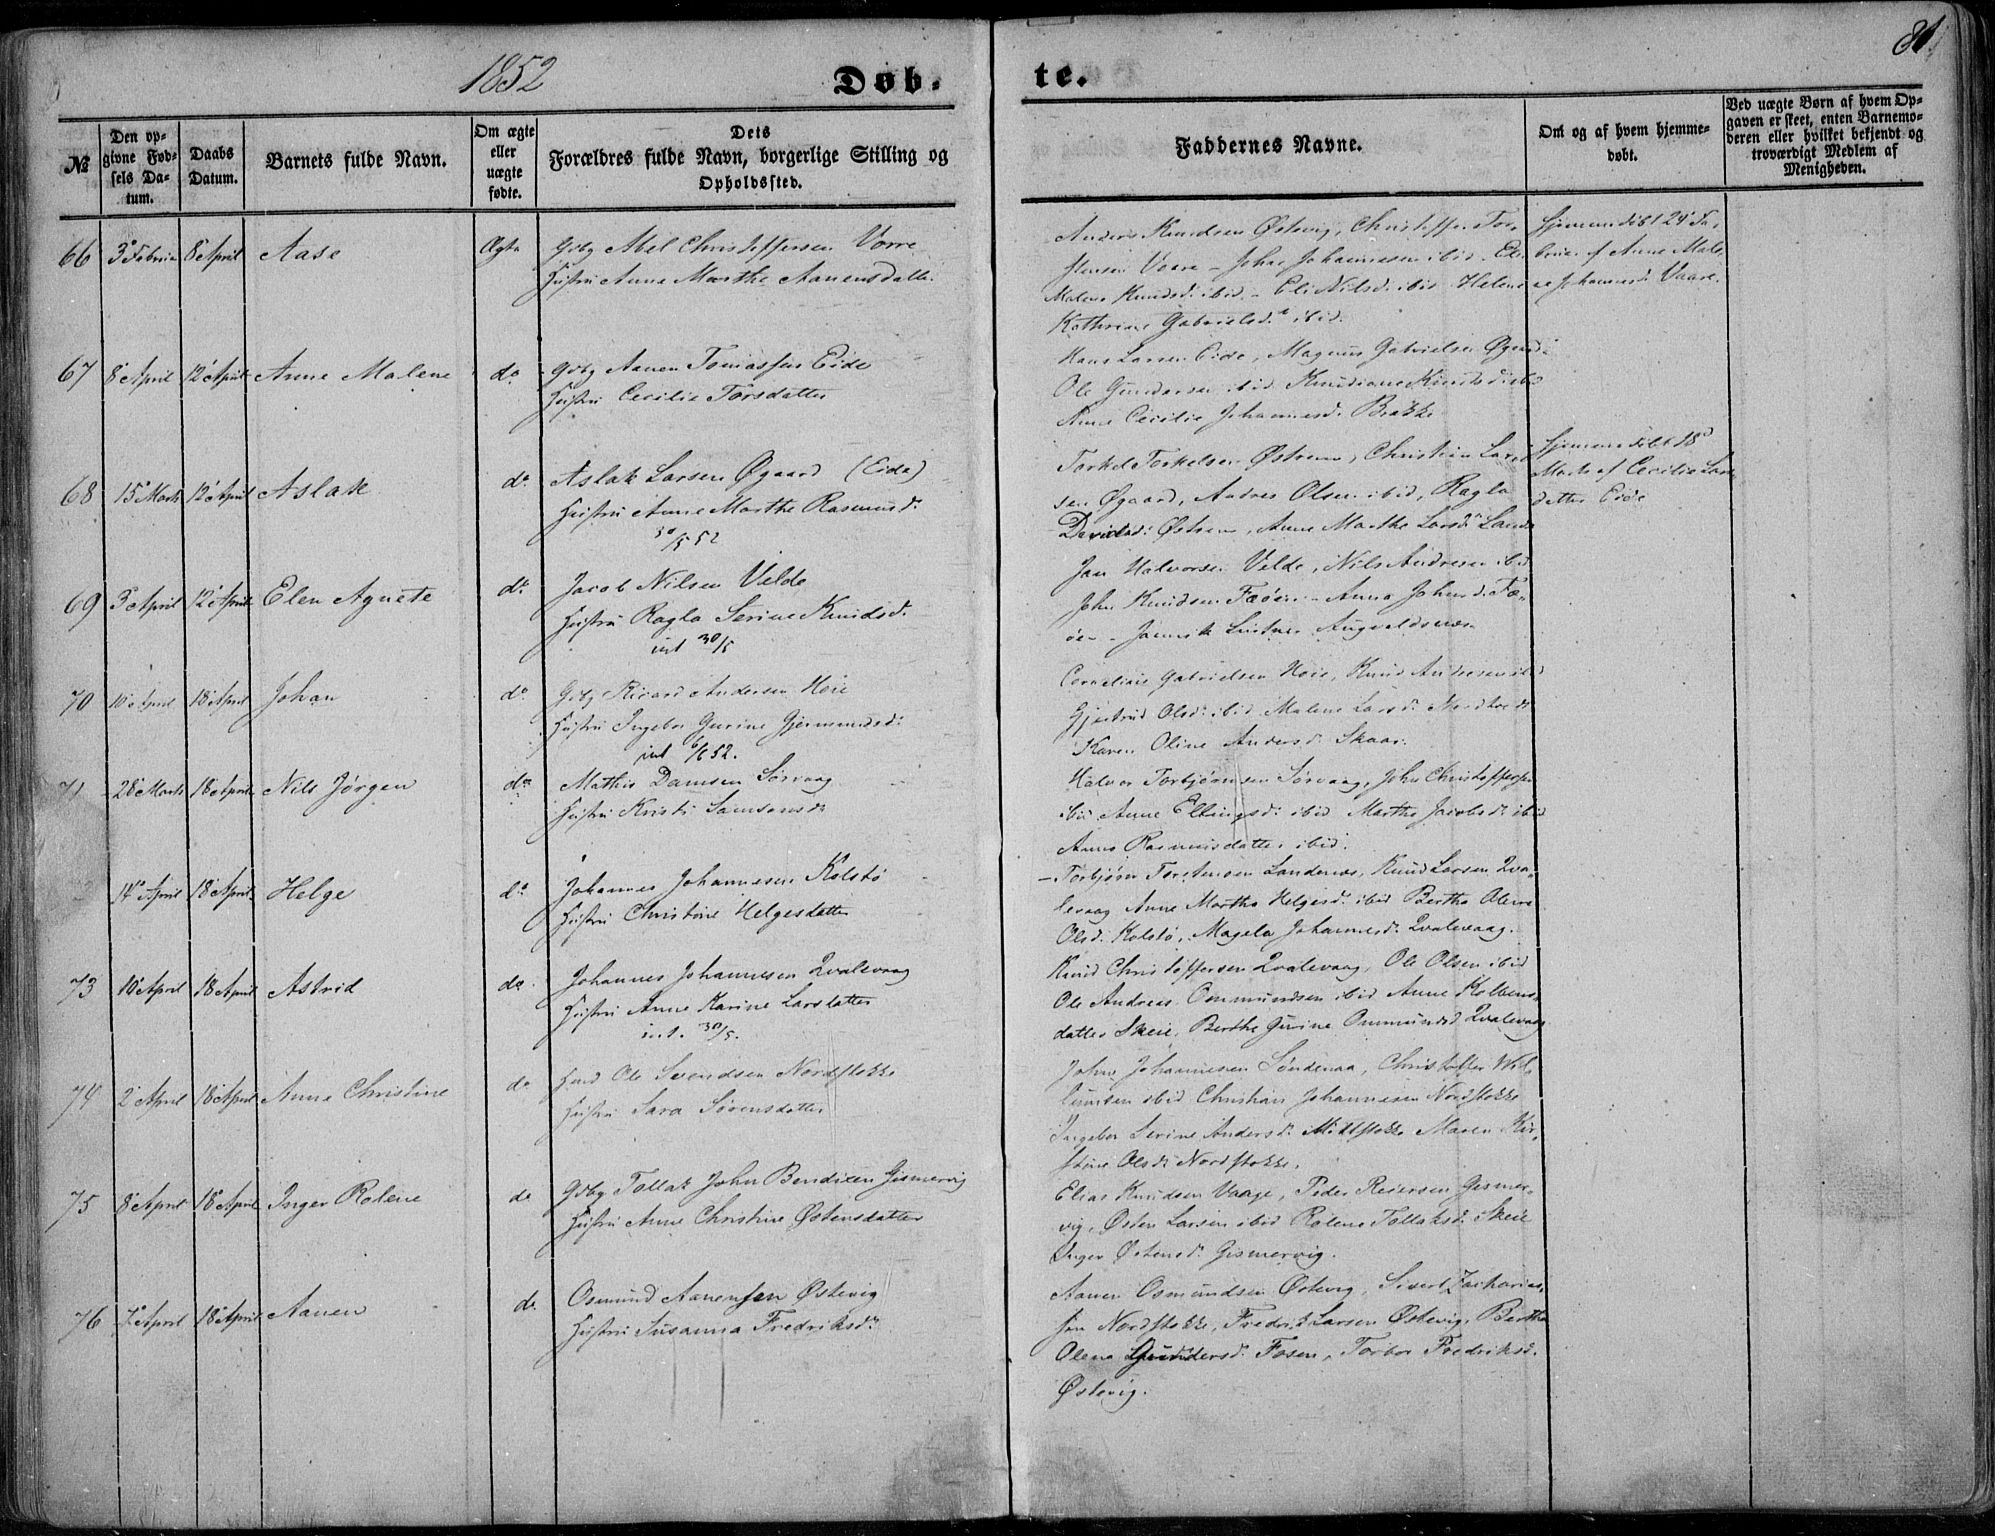 1852
Døb-
te.
81
№
Den op-
givne Fød-
sels Da-
tum.
Daabs
Datum.
Barnets fulde Navn.
Om ægte
eller
uægte
fødte.
Dets
Forældres fulde Navn, borgerlige Stilling og
Opholdssted.
Faddernes Navne.
Om og af hvem hjemme-
døbt.
Ved uægte Børn af hvem Op-
gaven er skeet, enten Barnemo-
deren eller hvilket bekjendt og
troværdigt Medlem af
Menigheden.
66 8 April Aase Ægte Gbg Abel Christoffersen Vorre
Hustru Anne Marthe Aanensdatter
Anders Knudsen Østevig, Christoffer Tor-
stensen Vaare - Johan Johannesen ibid
Malene Knudsd. ibid - Eli Nilsd. ibid Helene
Kathrine Gabrielsd. ibid.
Hjemmedøbt 24 Fe-
bruar af Anne Male-
ne Johannesd. Vaare.
67 8 April 12 April Anne Malene do. Gbg Aanen Tomassen Eide
Hustru Cecilie Torsdatter
Hans Larsen Eide, Magnus Gabrielsen Øgaard
Ole Gundersen ibid Knudiane Knudsd. ibid
Anne Cecilie Johannesd. Brække
68 15 Marts 12 April Aslak do. Aslak Larsen Øgaard (Eide)
Hustru Anne Marthe Rasmusd.
30/5 52
Torkel Torkelsen Østrem, Christian Lar-
sen Øgaard, Andres Olsen ibid, Ragla
Davidsd. Østrem, Anne Marthe Larsd.
Hjemmedøbt 18
Marts af Cecilie Lars-
datter Eide
69 5 April 12 April Elen Agnete do. Jacob Nilsen Velde
Hustru Ragla Serine Knudsd.
int 30/5
Jan Halvorsen Velde, Nils Andresen ibid
John Knudsen Feøen - Anna Johnsd. Fe-
øen - Augvaldsnæs
70 10 April 18 April Johan do. Gbg Rikard Andersen Høie
Hustru Ingebor Gurine Gjermundsd.
int 6/6 52.
Cornelius Gabrielsen Høie, Knud Andersen ibid
Gjertrud Olsd. ibid Malene Larsd.
Karen Oline Andersd. Skaar.
71 28 Marts 18 April Nils Jørgen do. Mathis Danisen Sørvaag
Hustru Kristi Samsonsd.
Halvor Torbjørnsen Sørvaag, John Christoffersen
ibid Anne Ellingsd. ibid Marthe Jacobsd. ibid
Anne Rasmusdatter ibid.
14 April 18 April Helge do. Johannes Johannesen Kolstø
Hustru Christine Helgesdatter
Torbjørn Torstensen Landenæs, Knud Larsen Qva-
levaag Anne Marthe Helgesd. ibid Berthe Olene
Olsd. Kolstø, Magela Johannesd. Qvalevaag.
73 10 April 18 April Astrid do. Johannes Johannesen Qvalevaag
Hustru Anne Karine Larsdatter
int. 30/5.
Knud Christoffersen Qvalevaag, Ole Olsen ibid
Ole Andreas Ommundsen ibid Anne Kolbens-
datter Skeie, Berthe Gurine Ommundsd Qvalevaag
74 2 April 18 April Anne Christine do Ole Svendsen Nordstokke
Hustru Sara Sørensdatter
John Johannesen Søndenaa, Christoffer Wil-
lumsen ibid Christian Johannesen Nordstokke
Ingebor Serine Andersd. Midtstokke Maren Kir-
stine Olsd. Nordstokke.
75 8 April 18 April Inger Rolene do Gbg Tollak John Bendixen Gismervig
Hustru Anne Christine Østensdatter
Elias Knudsen Vaage, Peder Reiersen Gismer-
vig, Østen Larsen ibid Rolene Tollaksd. Skeie
Inger Østensd. Gismervig.
76 7 April 18 April Aanen do. Osmund Aanensen Østevig
Hustru Susanna Fredriksd.
Aanen Osmundsen Østevig, Sivert Zacharias-
sen Nordstokke, Fredrik Larsen Østevig, Berthe
Olena Gundersd. Fosen, Torbor Fredriksd.
Østevig.